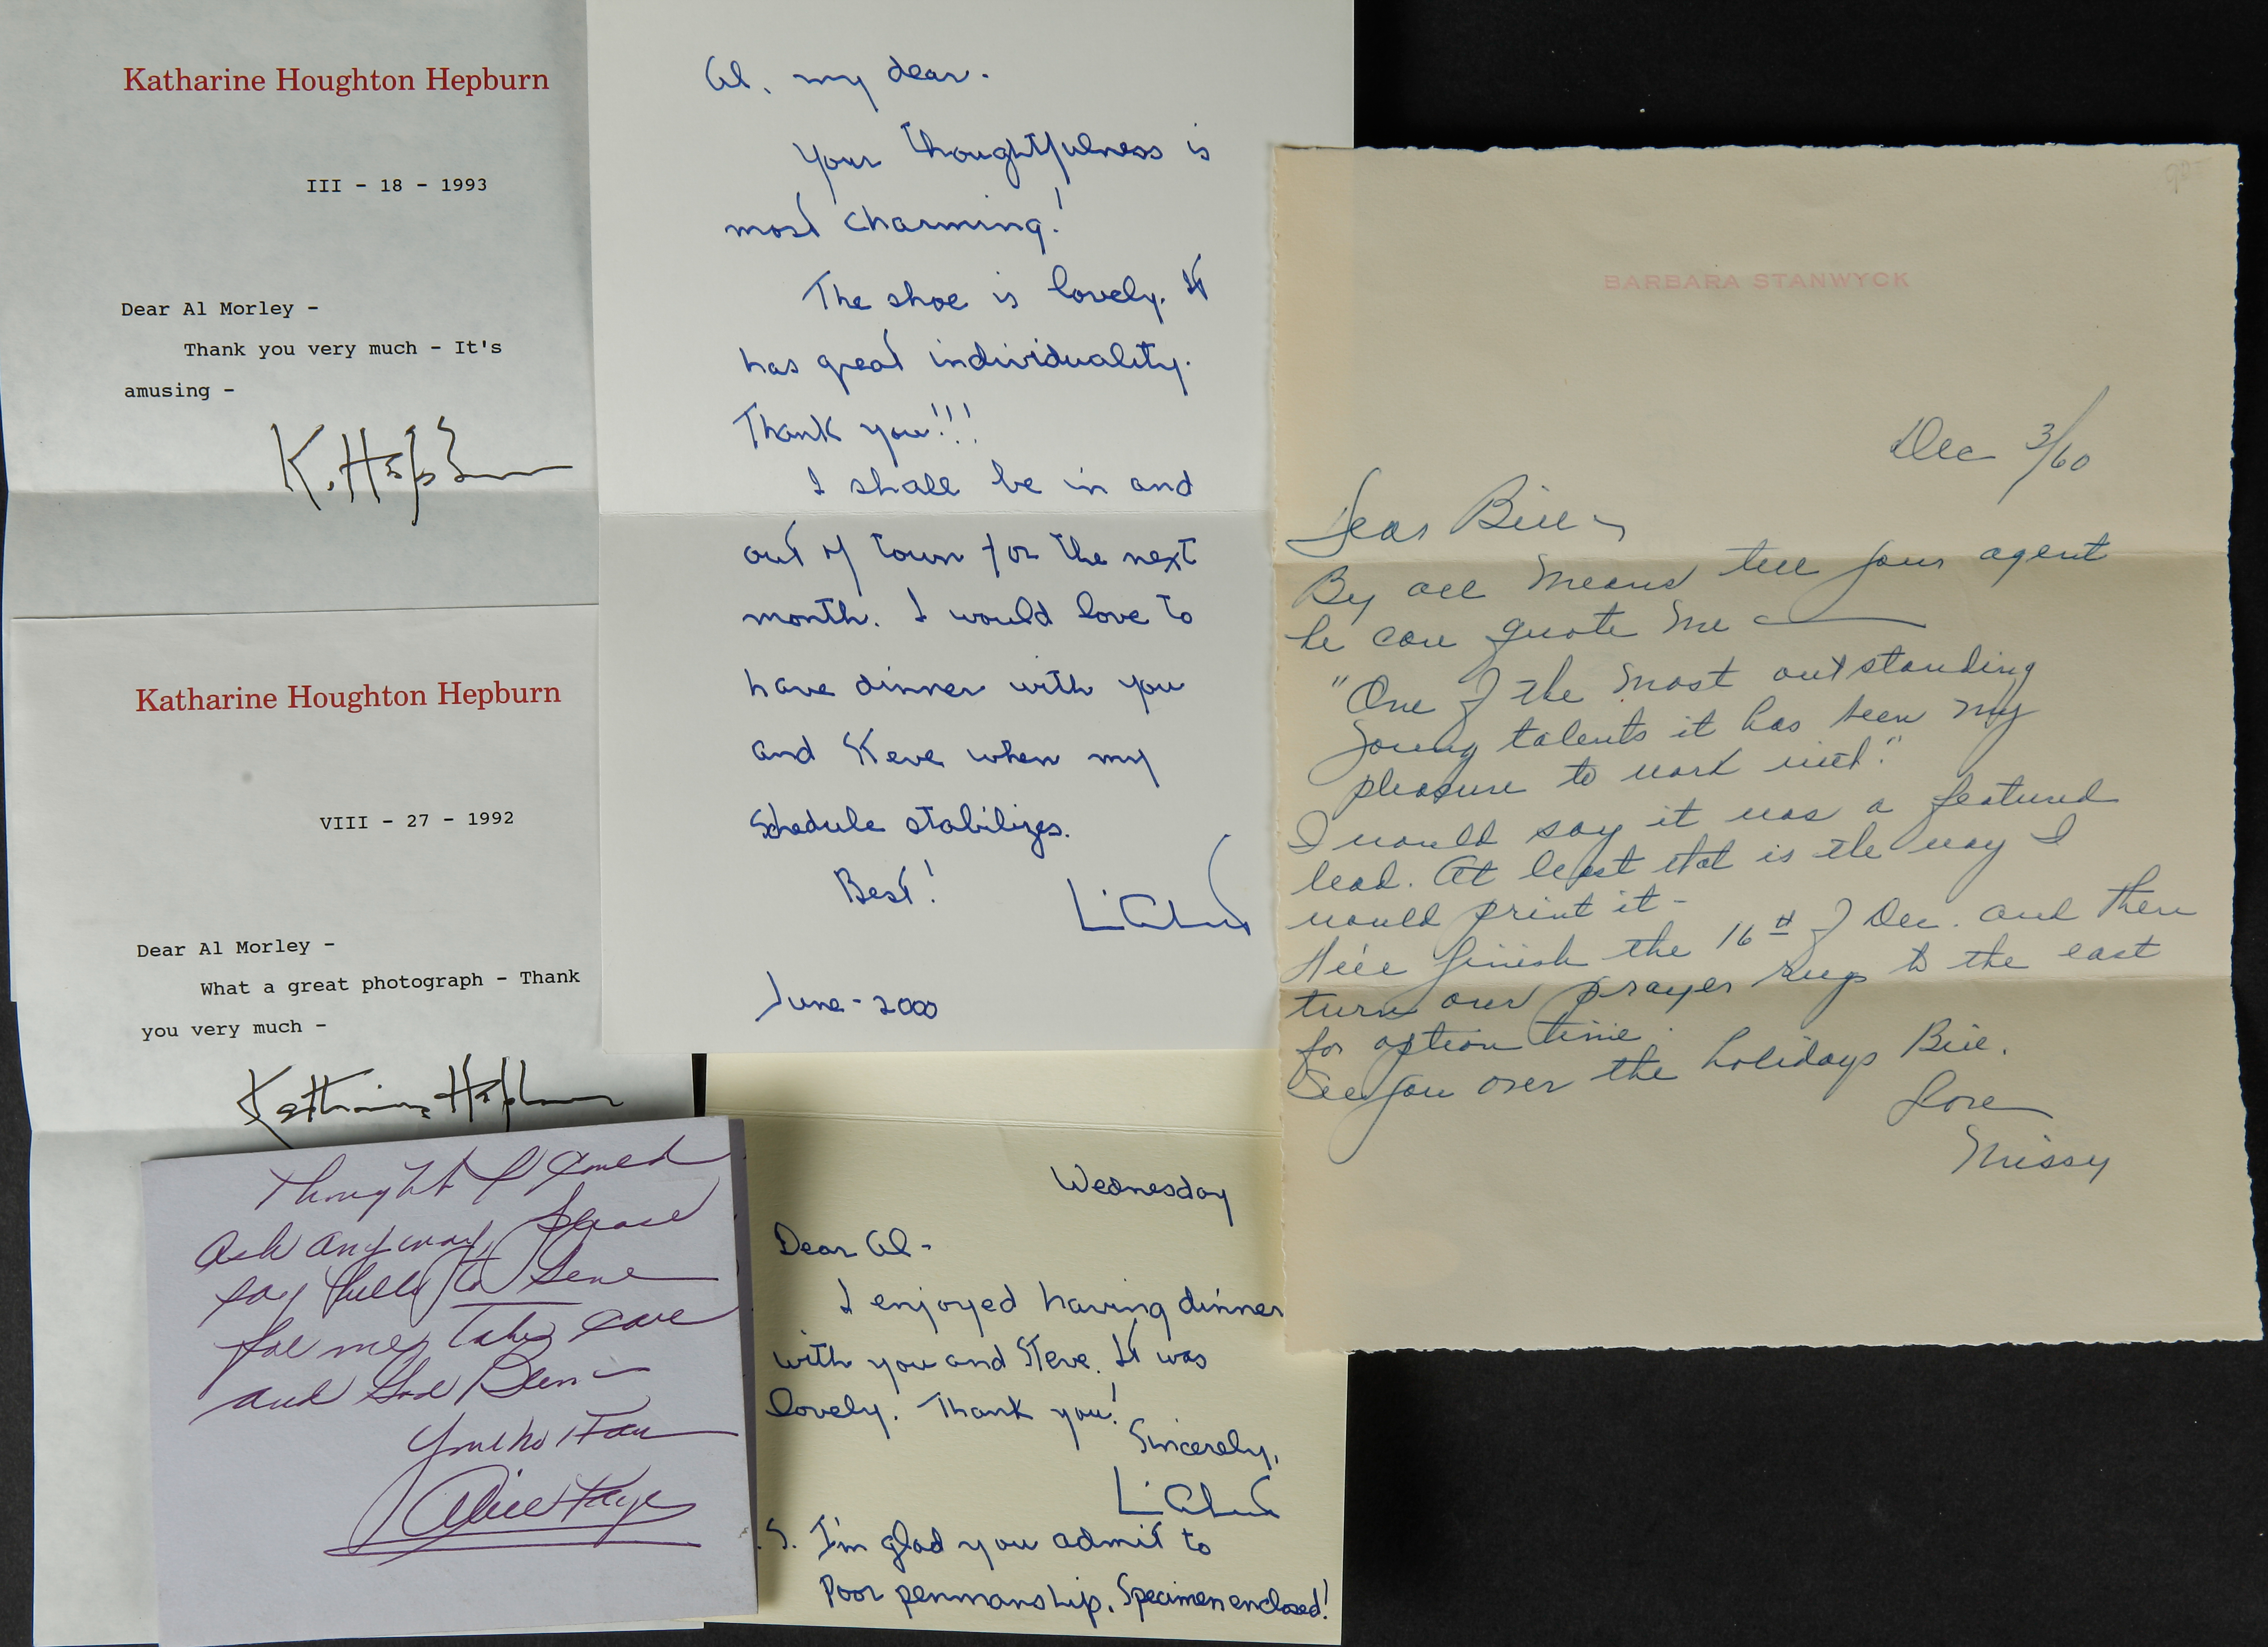 Katharine Houghton Hepburn
III - 18 - 1993
Dear Al Morley -
Thank you very much - It's
amusing -
K. Hepburn
Katharine Houghton Hepburn
VIII - 27 - 1992
Dear Al Morley -
What a great photograph - Thank
you very much -
Katharine Hepburn
Thought I could
ask anyway, please
say hello to Gene
for me, Take care
and God Bless -
Alice Faye
Al, my dear.
Your thoughtfulness is
most charming!
The shoe is lovely. It
has great individuality.
Thank you!!!
I shall be in and
out of town for the next
month. I would love to
have dinner with you
and Steve when my
schedule stabilizes.
Best!
June - 2000
Wednesday
Dear Al -
I enjoyed having dinner
with you and Steve. It was
lovely. Thank you!
Sincerely,
.S. I'm glad you admit to
Poor penmanship. Specimen enclosed!
BARBARA STANWYCK
Dec 3/60
Dear Bill -
By all means tell your agent
he can quote me
"One of the most outstanding
young talents it has been my
pleasure to work with."
I would say it was a featured
lead. At least that is the way I
would print it -
We'll finish the 16th of Dec. and then
turn our prayer rugs to the east
for option time.
See you over the holidays Bill.
Love
Missy